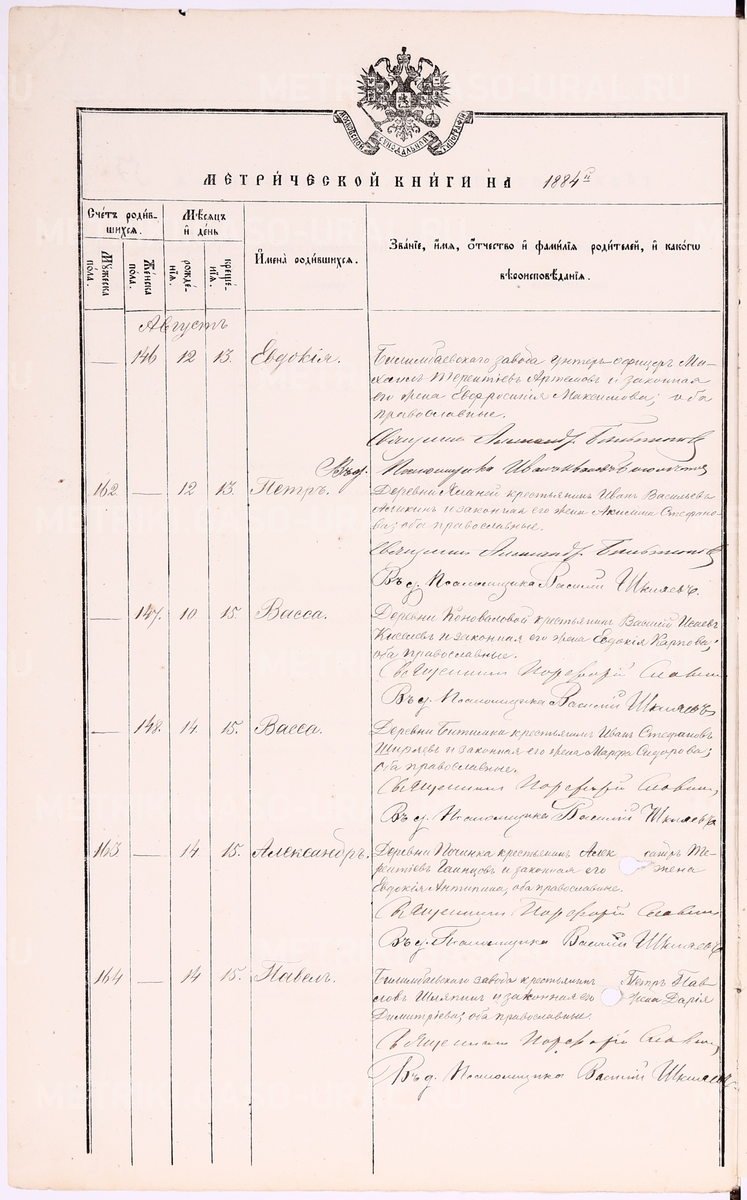 МОСКОВСКОЙ СѴНОДАЛЬНОЙ ТИПОГРАФІИ
МЕТРИЧЕСКОЙ КНИГИ НА 1884 й
Счетъ родив-
шихся.
Мѣсяцъ
и день
Имена родившихся.
Званіе, имя, отчество и фамилія родителей, и какогѡ
вѣроисповѣданія.
Мужеска
пола.
Женска
пола.
рожде-
нія.
креще-
нія.
Августъ
146 12 13. Евдокія.
Билимбаевскаго завода унтеръ-офицеръ Ми-
хаилъ Терентіевъ Артемовъ и законная
его жена Евфросинія Максимова; оба
православные.
Священникъ
Въ д. Псаломщика Иванъ
162 12 13. Петръ.
Деревни крестьянинъ Иванъ Васильевъ
и законная его жена Акилина Стефано-
ва; оба православные.
Священникъ
Въ д. Псаломщика Василій Шкляевъ.
147. 10 15. Васса.
Деревни Коноваловой крестьянинъ Василій Исаевъ
и законная его жена Евдокія Карпова;
оба православные.
Священникъ Порфирій Славнинъ
Въ д. Псаломщика Василій Шкляевъ
148. 14 15. Васса.
Деревни Битимка крестьянинъ Иванъ Стефановъ
Ширяевъ и законная его жена Марфа Сидорова;
оба православные.
Священникъ Порфирій Славнинъ
Въ д. Псаломщика Василій Шкляевъ
163 14 15. Александръ.
Деревни Починка крестьянинъ Алек сандръ Те-
рентіевъ и законная его жена
Евдокія Антипина; оба православные.
Священникъ Порфирій Славнинъ
Въ д. Псаломщика Василій Шкляевъ
164 14 15. Павелъ.
Билимбаевскаго завода крестьянинъ Петръ Пав-
ловъ Шляпинъ и законная его жена Дарія
Димитріева; оба православные.
Священникъ Порфирій Славнинъ
Въ д. Псаломщика Василій Шкляевъ